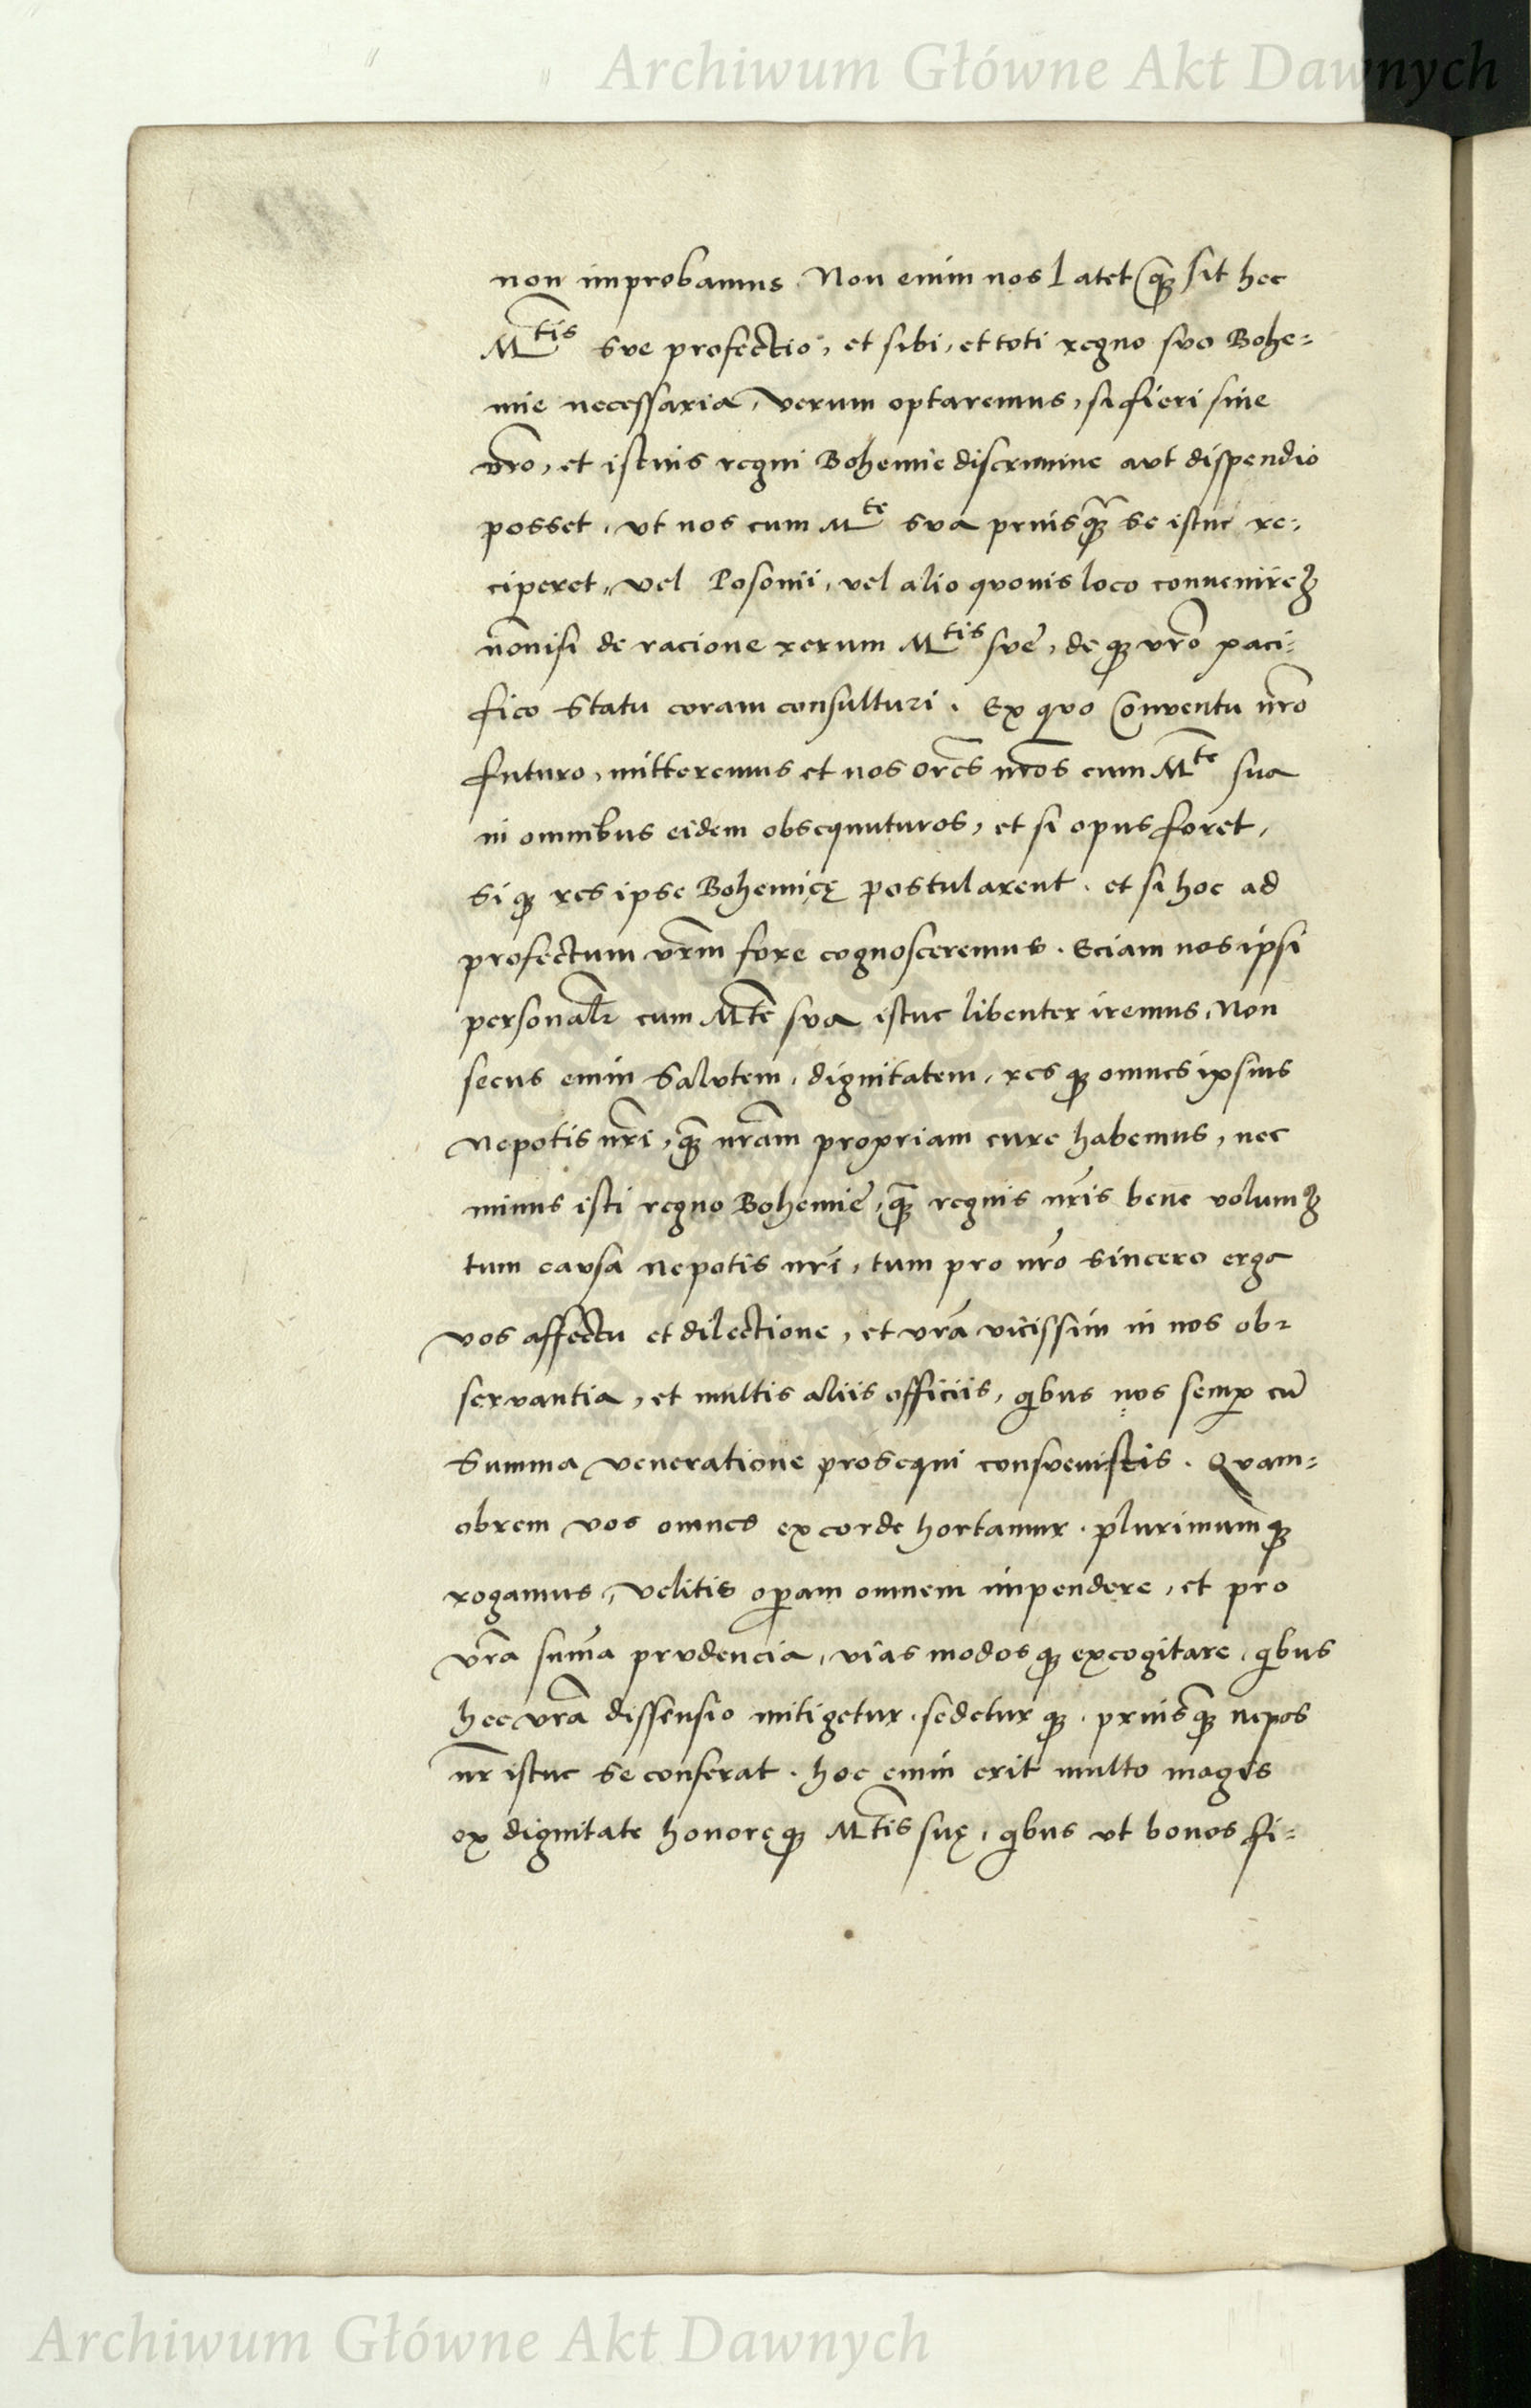 Archiwum Główne Akt Dawnych
non improbamus. Non enim nos latet q̃ꝫ sit hec
Mᵗⁱˢ sve profectio, et sibi, et toti regno svo Bohe=
mie necessaria, verum optaremus, si fieri sine
vr̃o, et istius regni Bohemie discrimine avt dispendio
posset, vt nos cum Mᵗᵉ sva priusq̃ꝫ se istuc re=
ciperet, vel Posonii, vel alio qvovis loco convenireꝫ
nõnisi de racione rerum Mᵗⁱˢ sve, deqꝫ vr̃o paci=
fico statu coram consulturi. Ex qvo Conventu nr̃o
futuro, mitteremus et nos or̃es nr̃os cum Mᵗᵉ sua
in omnibus eidem obsequuturos, et si opus foret,
siqꝫ res ipse Bohemicę postularent. et si hoc ad
profectum vr̃m fore cognosceremus. Eciam nos ipsi
personalr̃ cum Mᵗᵉ sva istuc libenter iremus, Non
secus enim salvtem, dignitatem, resqꝫ omnes ipsius
nepotis nr̃i, q̃ꝫ nr̃am propriam cure habemus, nec
minus isti regno Bohemie, q̃ꝫ regnis nr̃is bene volumꝫ
tum cavsa nepotis nr̃i, tum pro nr̃o sincero erga
vos affectu et dilectione, et vr̃a vicissim in nos ob=
servantia, et multis aliis officiis, qibus nos semp cũ
summa veneratione prosequi consvevistis. Qvam=
obrem vos omnes ex corde hortamur. plurimumqꝫ
rogamus, velitis opam omnem impendere, et pro
vr̃a sum̃a prvdencia, vias modosqꝫ excogitare, qibus
hec vr̃a dissensio mitigetur. sedeturqꝫ. priusq̃ꝫ nepos
nr̃ istuc se conferat. hoc enim erit multo magis
ex dignitate honoręqꝫ Mᵗⁱˢ suę, qibus vt bonos fi=
Archiwum Główne Akt Dawnych